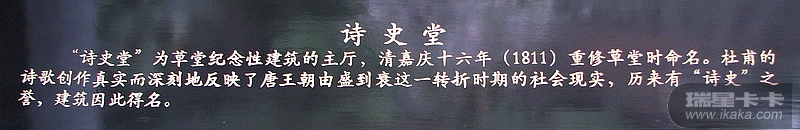 诗史堂
“诗史堂”为草堂纪念性建筑的主厅，清嘉庆十六年（1811）重修草堂时命名。杜甫的
诗歌创作真实而深刻地反映了唐王朝由盛到衰这一转折时期的社会现实，历来有“诗史”之
誉，建筑因此得名。
瑞星卡卡
www.ikaka.com